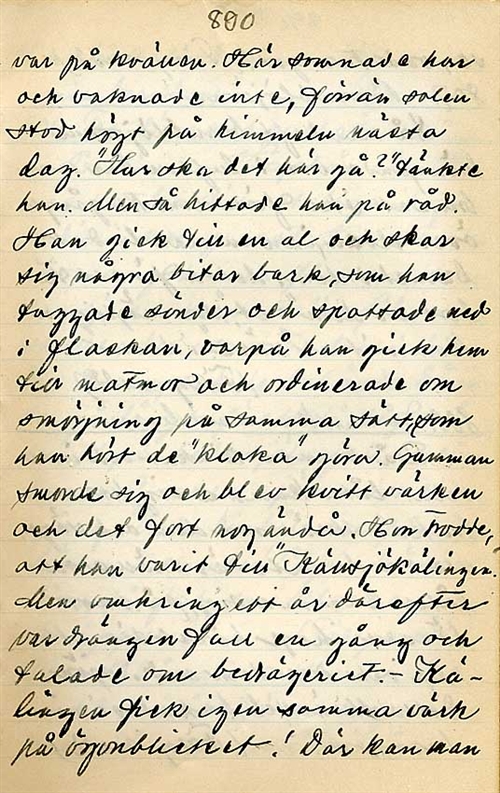 890
var på kvällen. Här somnade han
och vaknade inte, förrän solen
stod högt på himmeln nästa
dag. "Hur ska det här gå?" tänkte
han. Men så hittade han på råd.
Han gick till en al och skar
sig några bitar bark, som han
tuggade sönder och spottade ned
i flaskan, varpå han gick hem
till matmor och ordinerade om
smörjning på samma sätt, som
han hört de "kloka" göra. Gumman
smorde sig och blev kvitt värken
och det fort nog ändå. Hon trodde,
att han varit till "Känsjökälingen.
Men omkring ett år därefter
var drängen full en gång och
talade om bedrägeriet. – Kä-
lingen fick igen samma värk
på ögonblicket! Där kan man